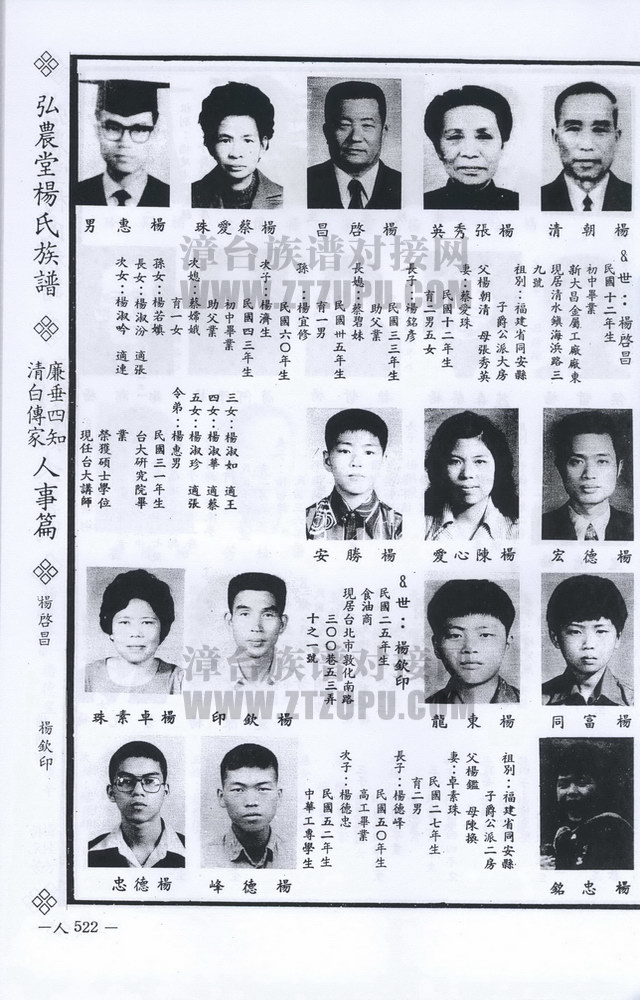 弘農堂楊氏族譜
廉垂四知
清白傳家
人事篇
楊啓昌
楊欽印
楊朝清
楊張秀英
楊啓昌
楊蔡愛珠
楊惠男
&世：楊啓昌
民國十二年生
初中畢業
新大昌金屬工廠廠東
現居清水鎮海浜路三
九號
祖別：福建省同安縣
子爵公派大房
父楊朝清 母張秀英
妻：蔡愛珠
民國十二年生
育二男五女
長子：楊銘彥
民國三三年生
助父業
長媳：蔡碧妹
民國卅五年生
育一男
孫：楊宜修
民國六〇年生
次子：楊濟生
民國四三年生
初中畢業
助父業
次媳：蔡嫦娥
育一女
孫女：楊若嬪
長女：楊淑汾 適張
次女：楊淑吟 適連
三女：楊淑如 適王
四女：楊淑華 適蔡
五女：楊淑珍 適張
令弟：楊惠男
民國三一年生
台大研究院畢
業
榮獲碩士學位
現任台大講師
楊德宏
楊陳心愛
楊勝安
楊富同
楊東龍
&世：楊欽印
民國二五年生
食油商
現居台北市敦化南路
三〇〇巷五三弄
十之一號
楊欽印
楊卓素珠
楊忠銘
祖別：福建省同安縣
子爵公派二房
父楊鑑 母陳換
妻：卓素珠
民國二七年生
育二男
長子：楊德峰
民國五〇年生
高工畢業
次子：楊德忠
民國五二年生
中華工專學生
楊德峰
楊德忠
漳台族谱对接网
WWW.ZTZUPU.COM
漳台族谱对接网
WWW.ZTZUPU.COM
—人 522 —